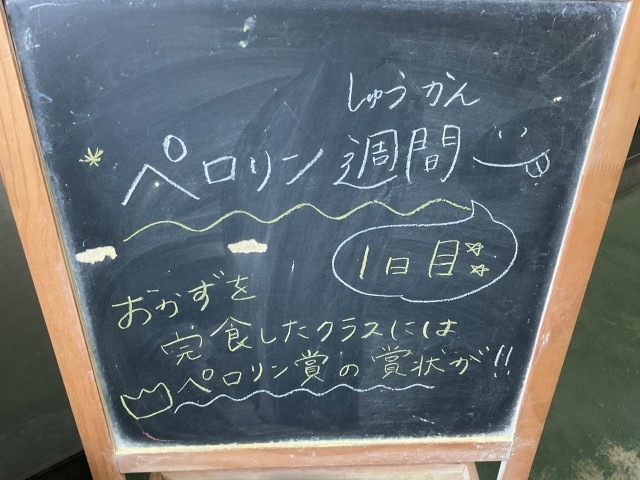 しゅうかん
ペロリン週間
1日目
おかずを
完食したクラスには
ペロリン賞の賞状が!!